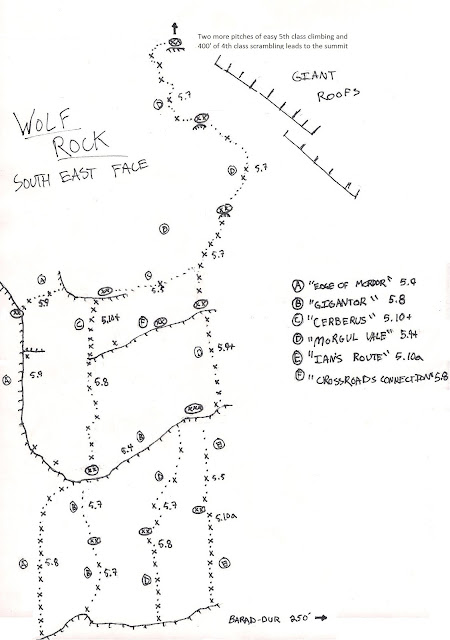 Two more pitches of easy 5th class climbing and
400' of 4th class scrambling leads to the summit
XX
GIANT
ROOFS
5.7
D
XX
WOLF
ROCK
SOUTH EAST FACE
D
5.7
XX
D
5.7
A
XX
C
5.9
XX
XX
C
5.10+
F
XX
D
5.9+
A
5.9
5.8
XXX
5.4
B
XX
E
D
5.5
B
5.7
5.7
XX
5.10a
XX
XX
5.8
A
5.8
B
5.7
D
E
A "EDGE OF MORDOR" 5.9
B "GIGANTOR" 5.8
C "CERBERUS" 5.10+
D "MORGUL VALE" 5.9+
E "IAN'S ROUTE" 5.10a
F "CROSSROADS CONNECTION" 5.8
BARAD-DUR 250'